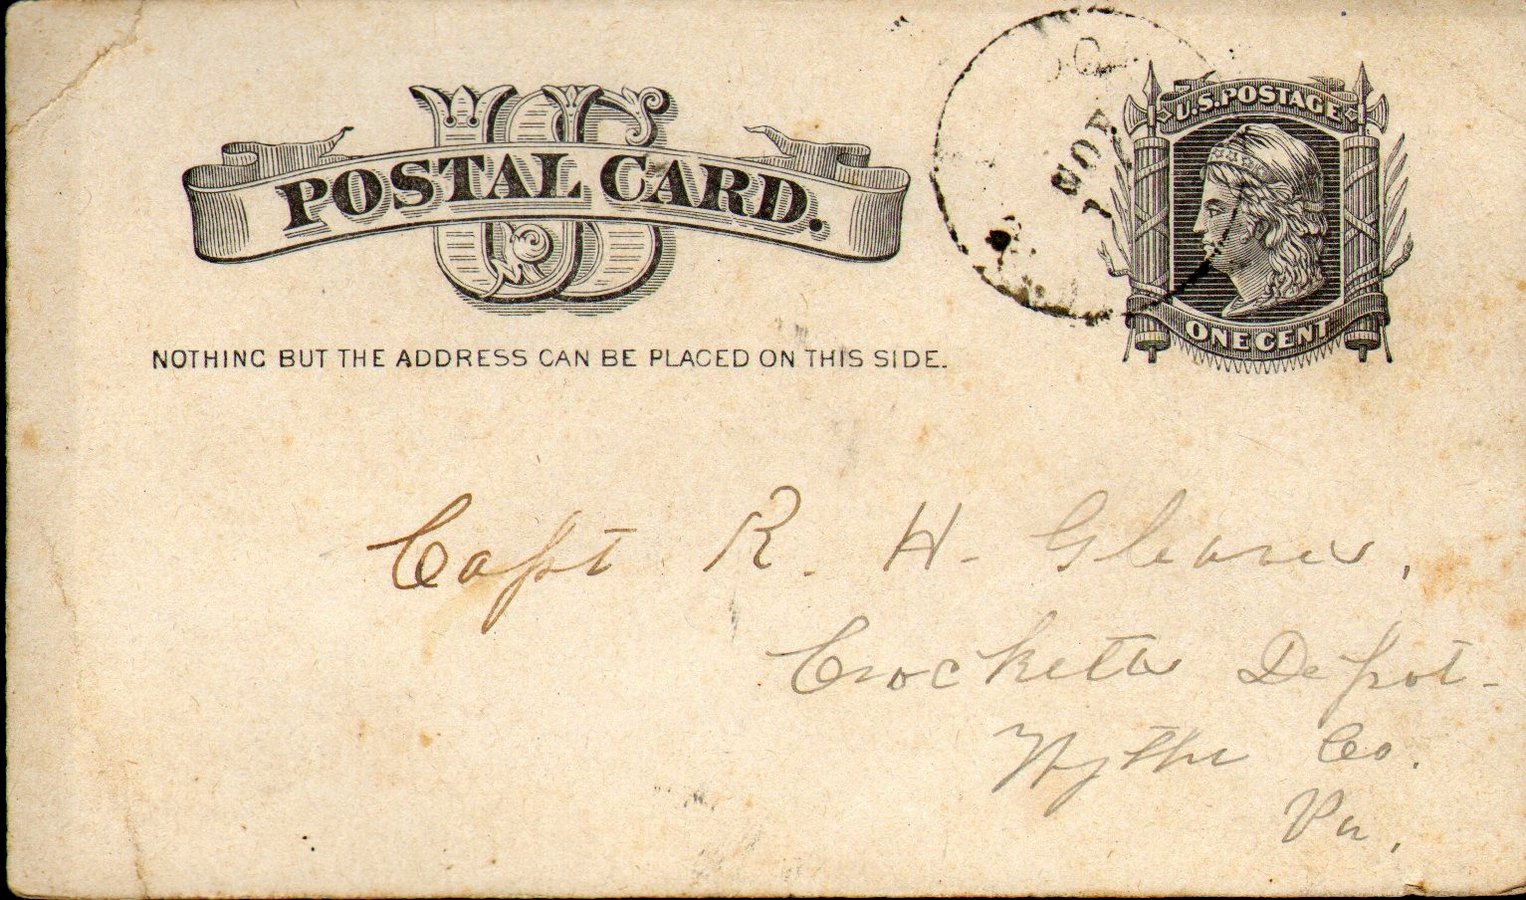 US
POSTAL CARD.
NOTHING BUT THE ADDRESS CAN BE PLACED ON THIS SIDE.
NOV
7
U.S. POSTAGE
ONE CENT
Capt R. H. Gleaves,
Crocketts Depot-
Wythe Co.
Va.